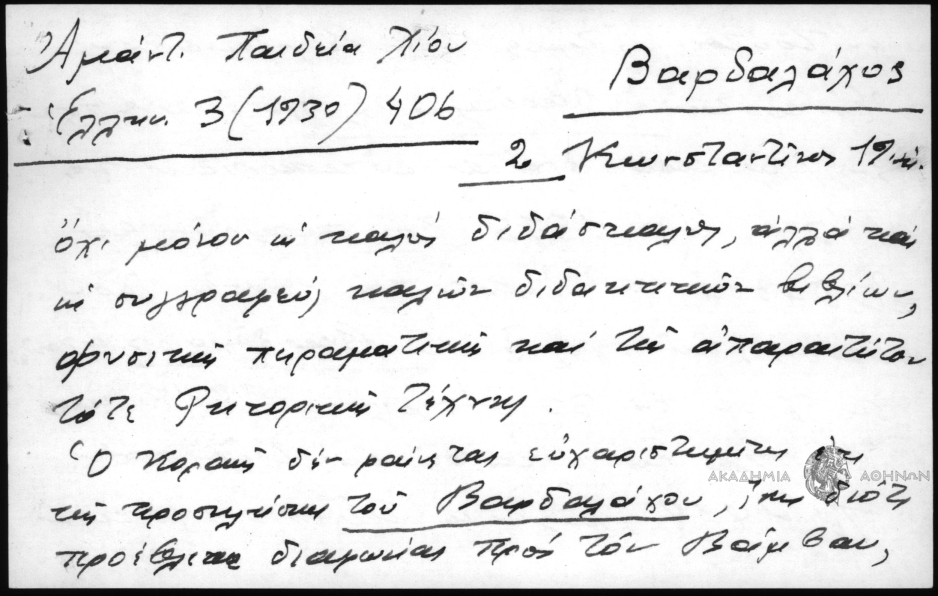 Ἀμάντ. Παιδεία Χίου
Ἑλλην. 3 (1930) 406
Βαρδαλάχος
2 Κωνσταντῖνος 19
ὄχι μόνον ὡς καλὸς διδάσκαλος, ἀλλὰ καὶ
ὡς συγγραφεὺς καλῶν διδακτικῶν βιβλίων,
φυσικῆς πειραματικῆς καὶ τῆς ἀπαραιτήτου
τότε Ρητορικῆς τέχνης.
Ὁ Κοραῆς δὲν φαίνεται εὐχαριστημένος ἐκ
τῆς προσκλήσεως τοῦ Βαρδαλάχου, διότι
προέβλεπε διαφωνίας πρὸς τὸν Βάμβαν,
ΑΚΑΔΗΜΙΑ ΑΘΗΝΩΝ